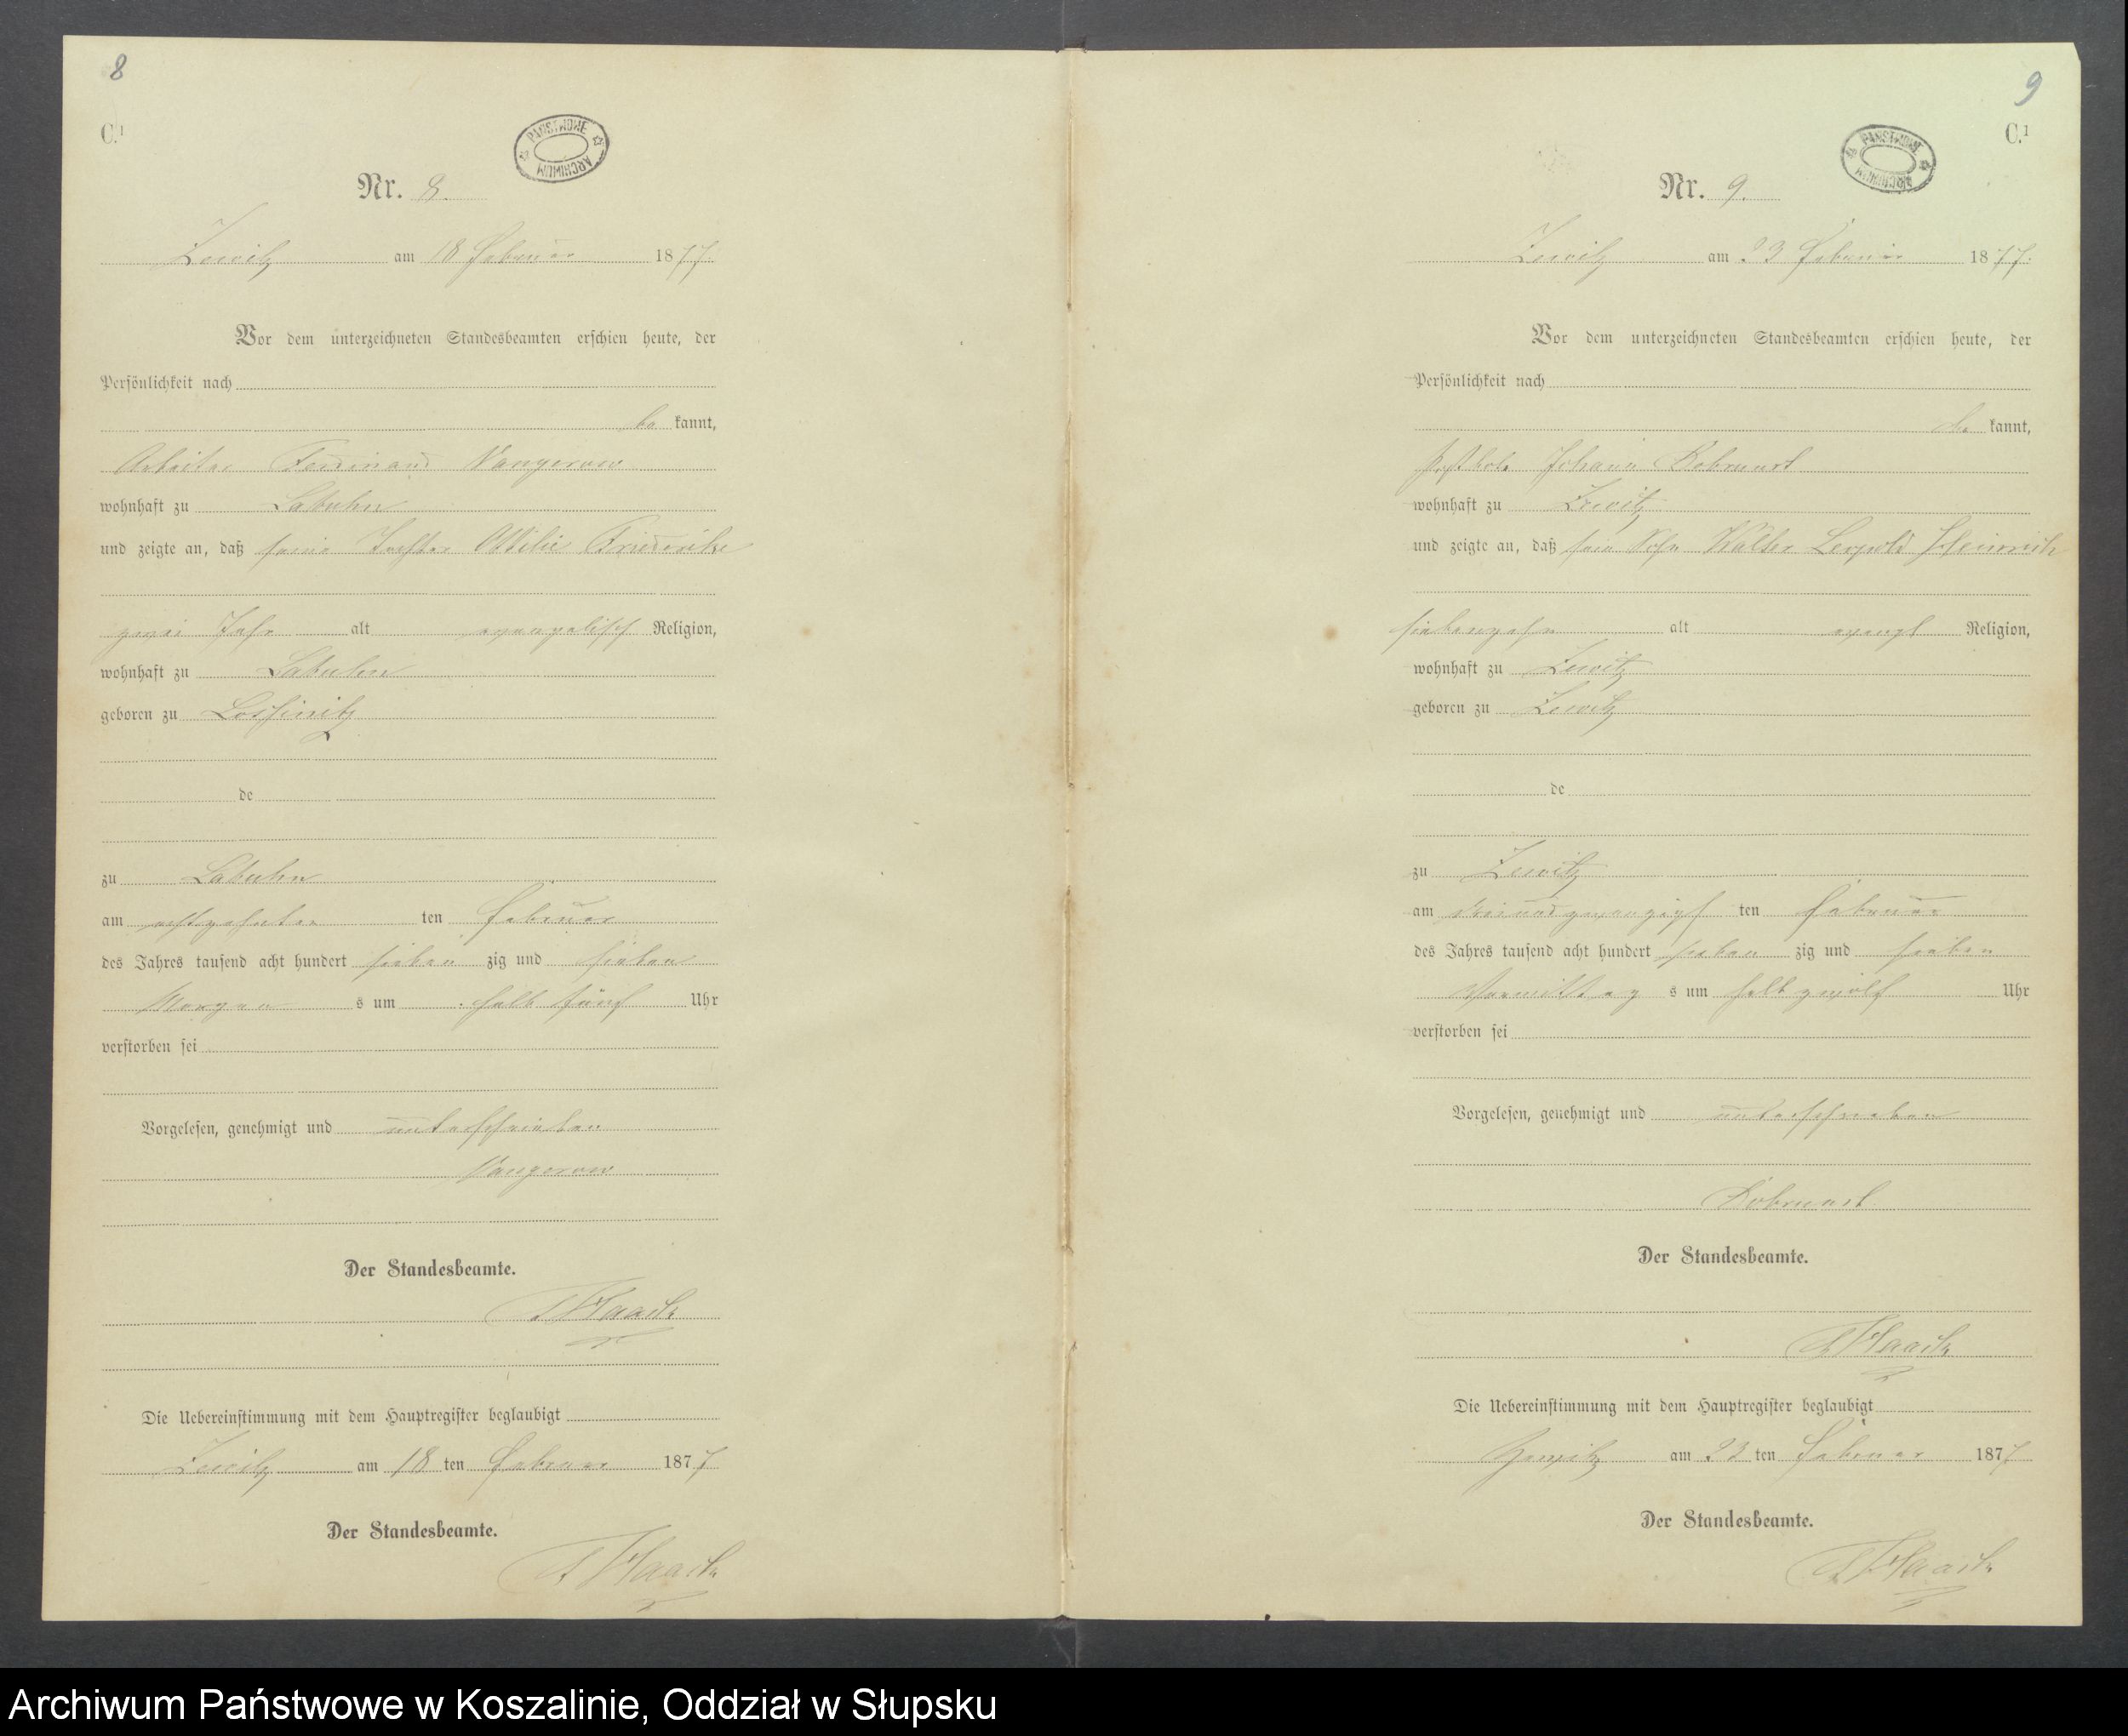 8
C.1
PAŃSTWOWE
ARCHIWUM
Nr. 8.
Zewitz am 18 Februar 1877.
Vor dem unterzeichneten Standesbeamten erschien heute, der
Persönlichkeit nach
be kannt,
Arbeiter Ferdinand Vangerow
wohnhaft zu Labuhn
und zeigte an, daß seine Tochter Ottilie Friederike
zwei Jahr alt evangelisch Religion,
wohnhaft zu Labuhn
geboren zu
de
zu Labuhn
am achtzehnten ten Februar
des Jahres tausend acht hundert sieben zig und sieben
Morgen s um halb fünf Uhr
verstorben sei
Vorgelesen, genehmigt und unterschrieben
Vangerow
Der Standesbeamte.
Haack
Die Uebereinstimmung mit dem Hauptregister beglaubigt
Zewitz am 18 ten Februar 1877
Der Standesbeamte.
Haack
9
C.1
PAŃSTWOWE
ARCHIWUM
Nr. 9.
Zewitz am 23 Februar 1877.
Vor dem unterzeichneten Standesbeamten erschien heute, der
Persönlichkeit nach
be kannt,
Postbote Johann
wohnhaft zu Zewitz
und zeigte an, daß sein Sohn Walter Leopold Heinrich
siebenzehn alt evangl Religion,
wohnhaft zu Zewitz
geboren zu Zewitz
de
zu Zewitz
am dreiundzwanzigst ten Februar
des Jahres tausend acht hundert sieben zig und sieben
Vormittag s um halb zwölf Uhr
verstorben sei
Vorgelesen, genehmigt und unterschrieben
Der Standesbeamte.
Haack
Die Uebereinstimmung mit dem Hauptregister beglaubigt
Zewitz am 23 ten Februar 1877
Der Standesbeamte.
Haack
Archiwum Państwowe w Koszalinie, Oddział w Słupsku